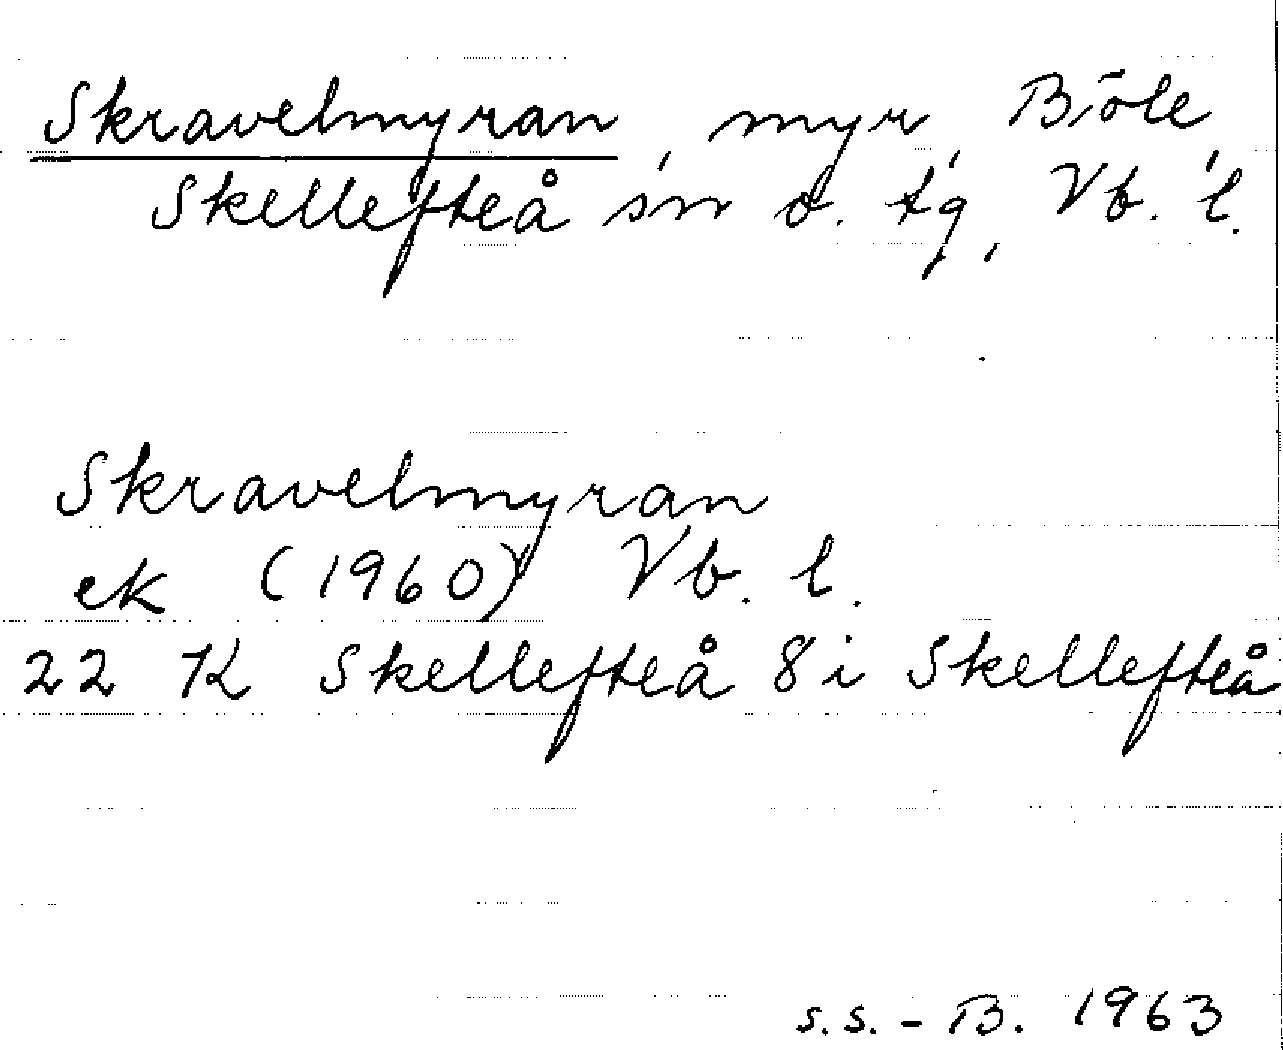 Skravelmyran, myr, Böle,
Skellefteå sn o. tg, Vb. l.
Skravelmyran
ek (1960) Vb. l.
22 K Skellefteå 8 i Skellefteå
S.S.-B. 1963